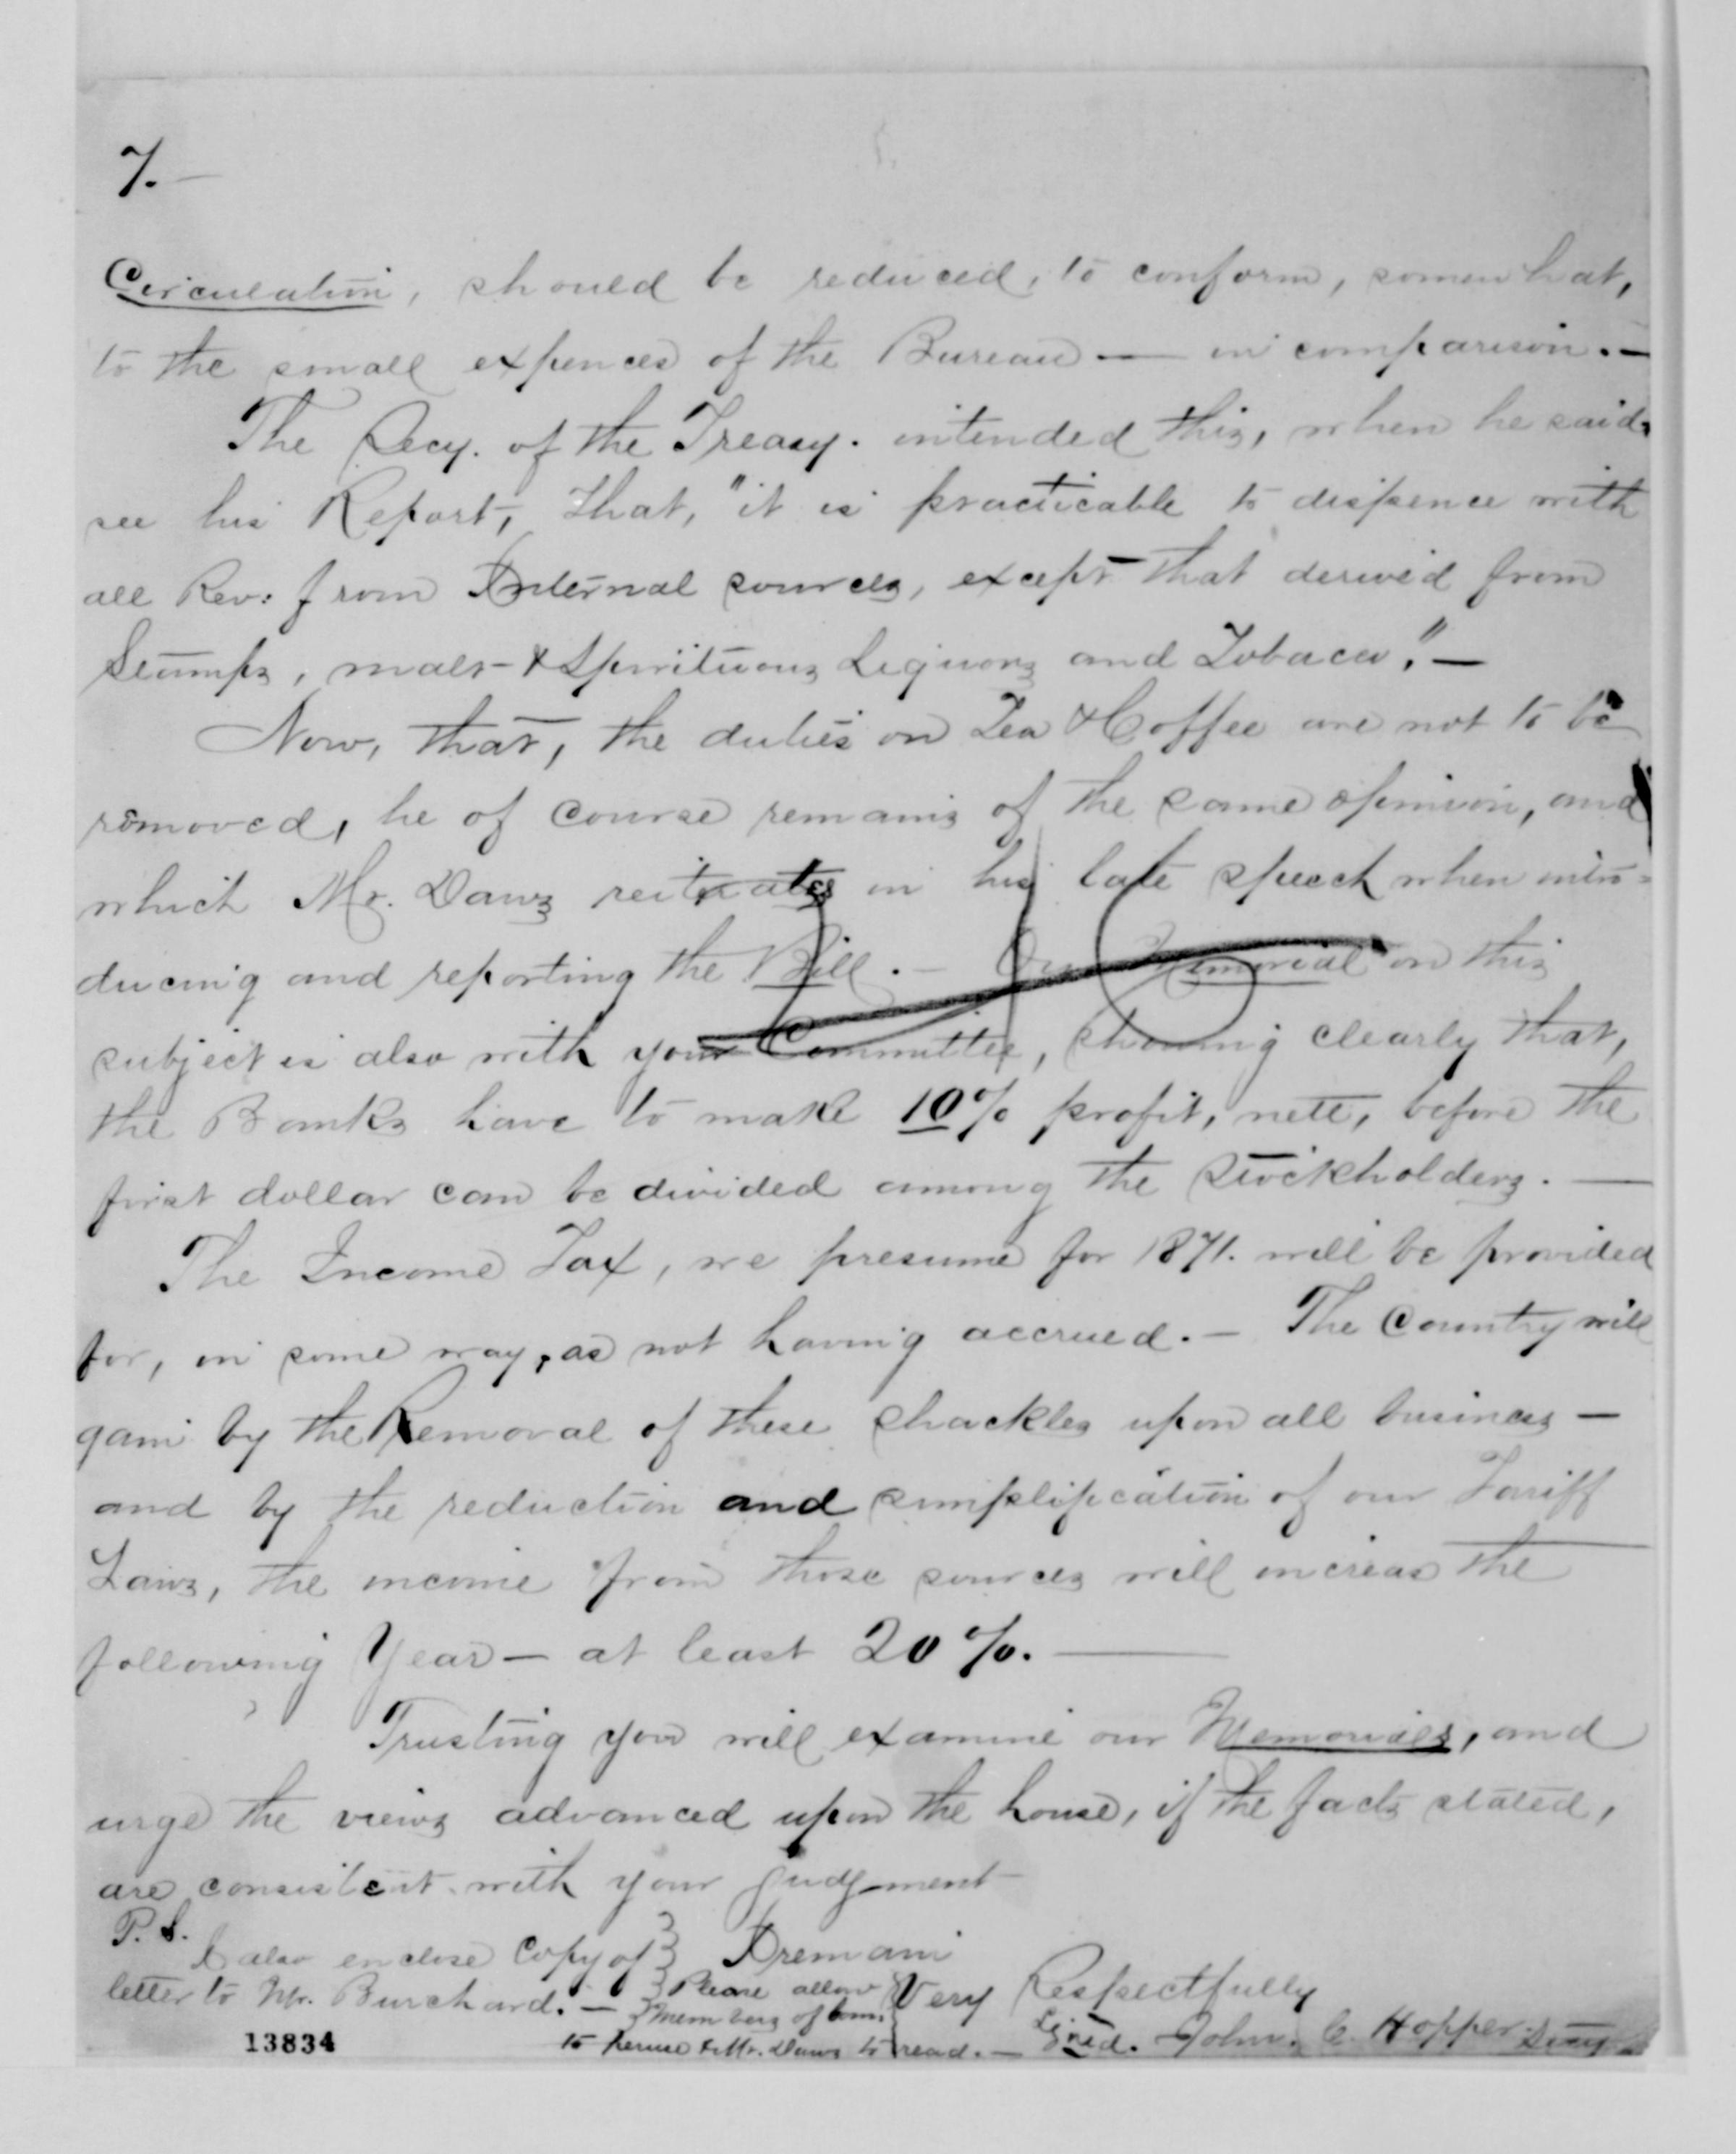 7.—
Circulation, should be reduced, to conform, somewhat,
to the small expences of the Bureau — in comparison.—
The Secy. of the Treasy. intended this, when he said,
see his Report, that, "it is practicable to dispence with
all Rev: from Internal sources, except that derived from
Stamps, malt & Spirituous Liquors and Tobacco."—
Now, that, the duties on Tea & Coffee are not to be
removed, he of course remains of the same opinion, and
which Mr. Daws reiterates in his late speech when intro=
ducing and reporting the Bill.— Our Memorial on this
subject is also with your Committee, showing clearly that,
the Banks have to make 10% profit, nett, before the
first dollar can be divided among the stockholders.—
The Income Tax, we presume for 1871. will be provided
for, in some way, as not having accrued.— The Country will
gain by the Removal of these shackles upon all business —
and by the reduction and simplification of our Tariff
Laws, the income from those sources will increas the
following Year — at least 20%.—
Trusting you will examine our Memorials, and
urge the views advanced upon the house, if the facts stated,
are consistent with your judgment
P.S.
I also enclose Copy of
letter to Mr. Burchard.—
I remain
Please allow
Members of Com.
to peruse & Mr. Daws to read.—
Very Respectfully
Signed. John. C. Hopper.
13834